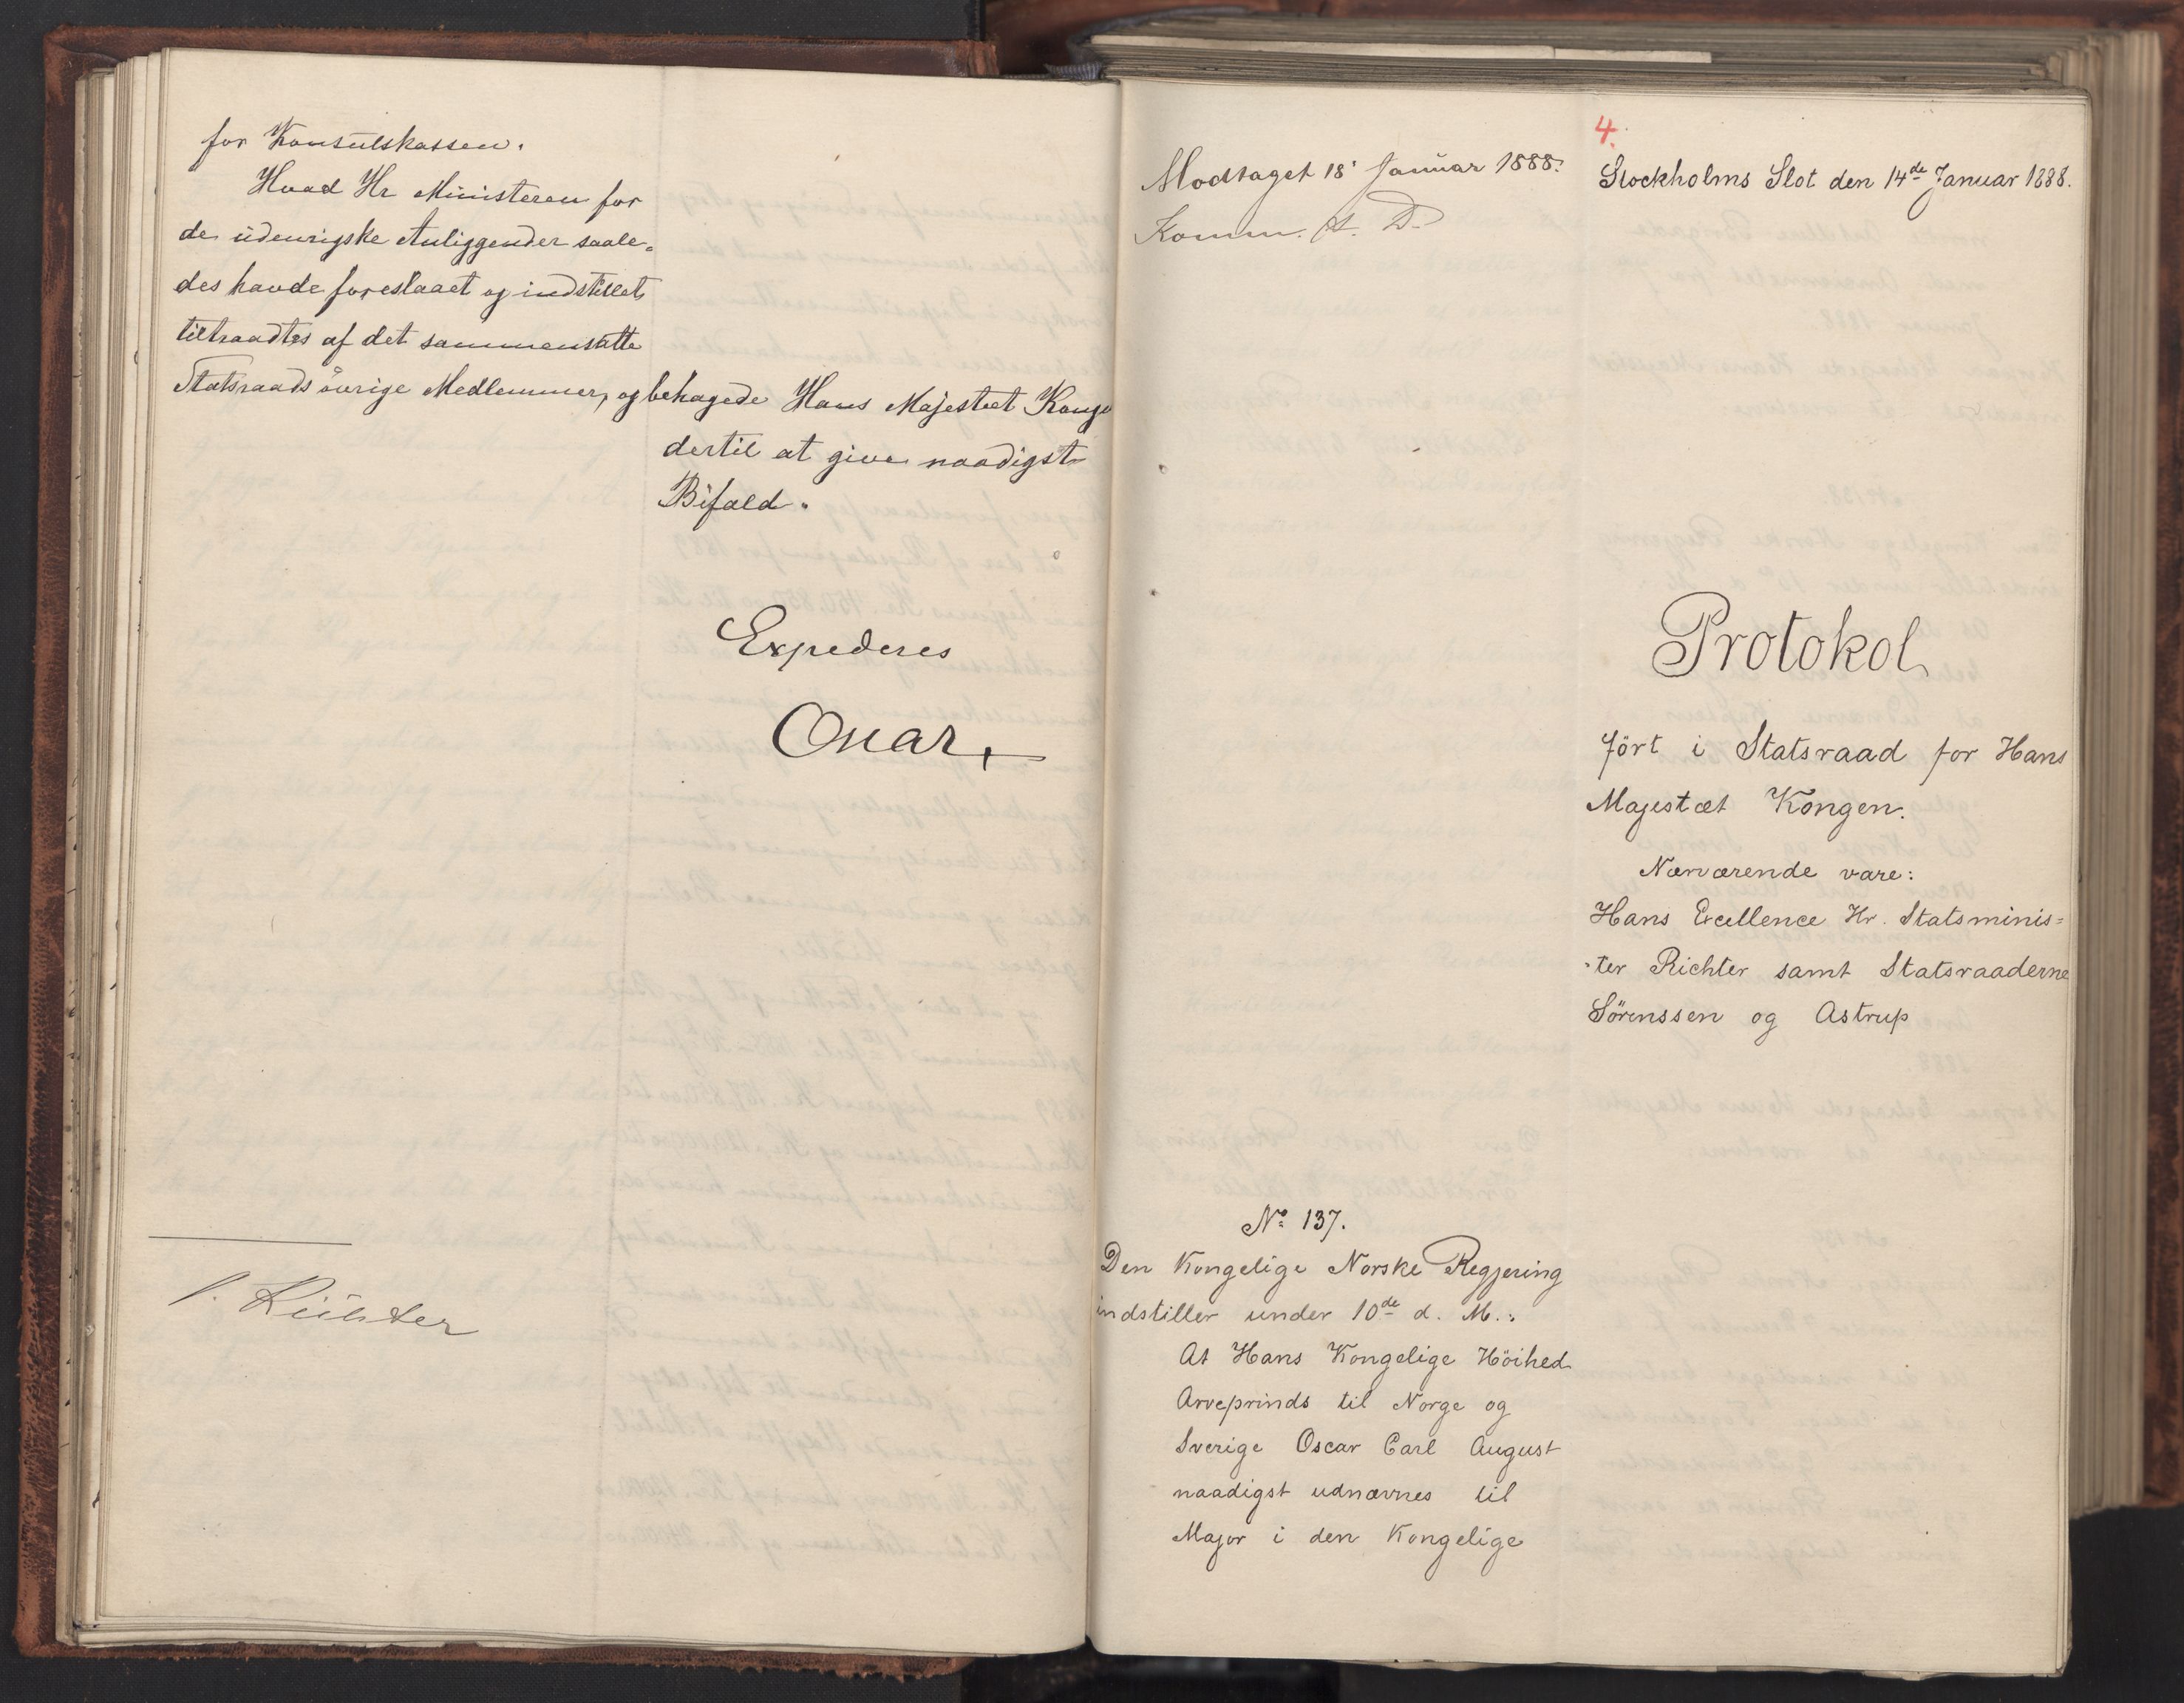 for Konsulskassen.
Hvad Hr Ministeren for
de udenrigske Anliggender saale-
des havde foreslaaet og indstillet
tiltraadtes af det sammensatte
Statsraads øvrige Medlemmer, og behagede Hans Majestæt Kongen
dertil at give naadigst
Bifald.
Expederes
Oscar
O. Richter
Modtaget 18' Januar 1888.
Komm. A. D.
4.
Stockholms Slot den 14de Januar 1888.
Protokol
ført i Statsraad for Hans
Majestæt Kongen.
Nærværende vare:
Hans Excellence Hr. Statsminis=
ter Richter samt Statsraaderne
Sörenssen og Astrup
No 137.
Den Kongelige Norske Regjering
indstiller under 10de d. M.:
At Hans Kongelige Höihed
Arveprinds til Norge og
Sverige Oscar Carl August
naadigst udnævnes til
Major i den Kongelige